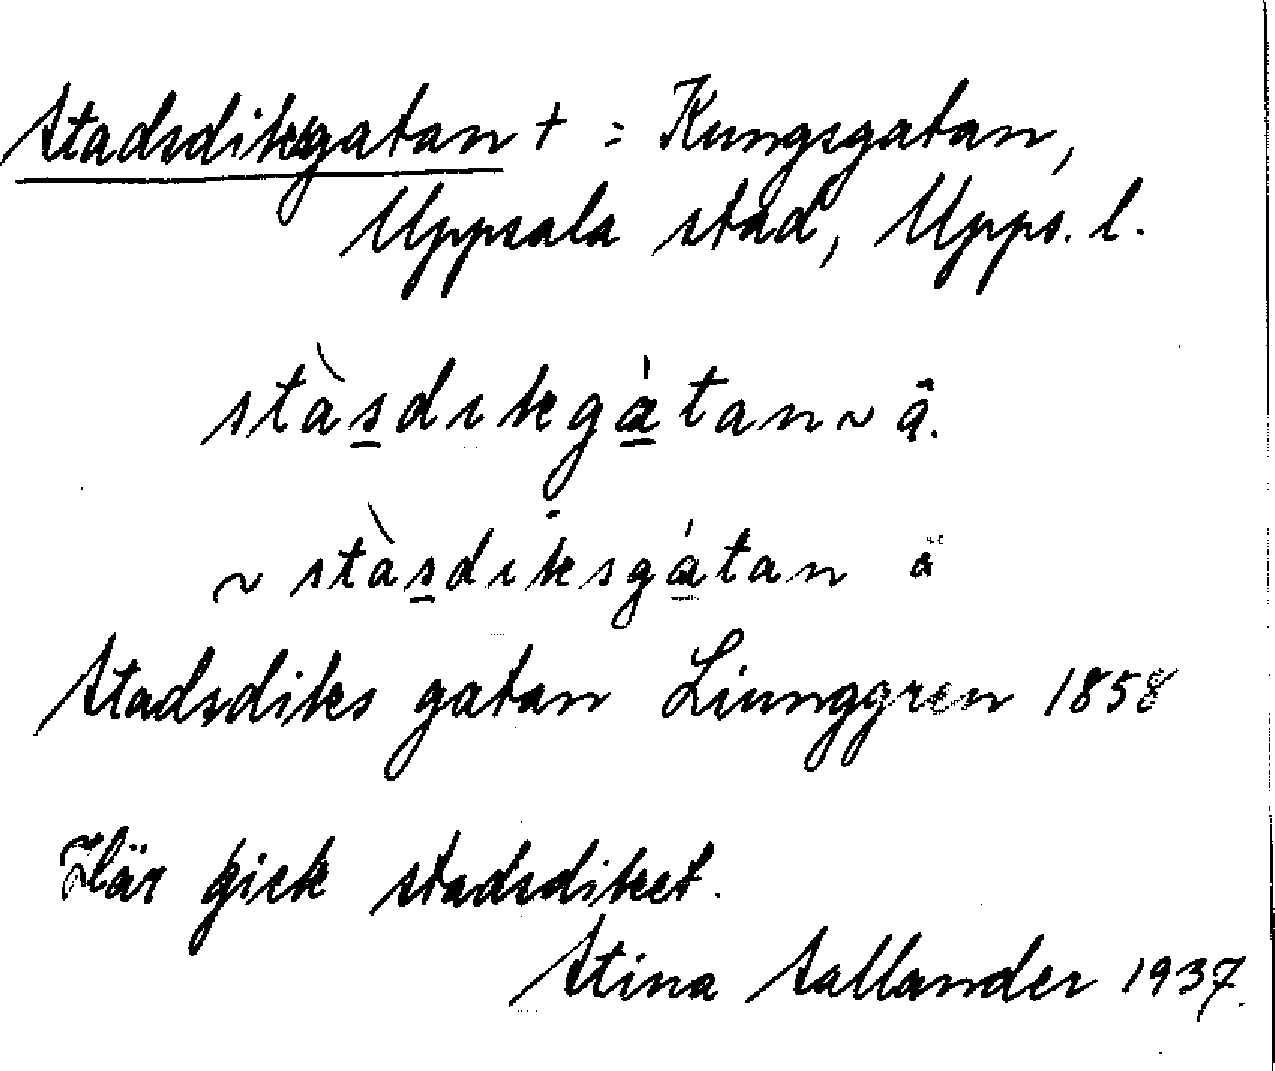 Stadsdiksgatan + = Kungsgatan,
Uppsala stad, Upps. l.
stàsdıkgátan ~ â.
~ stàsdıksgátan ä
Stadsdiks gatan Liunggren 1858
Här gick stadsdiket.
Stina Sallander 1937.